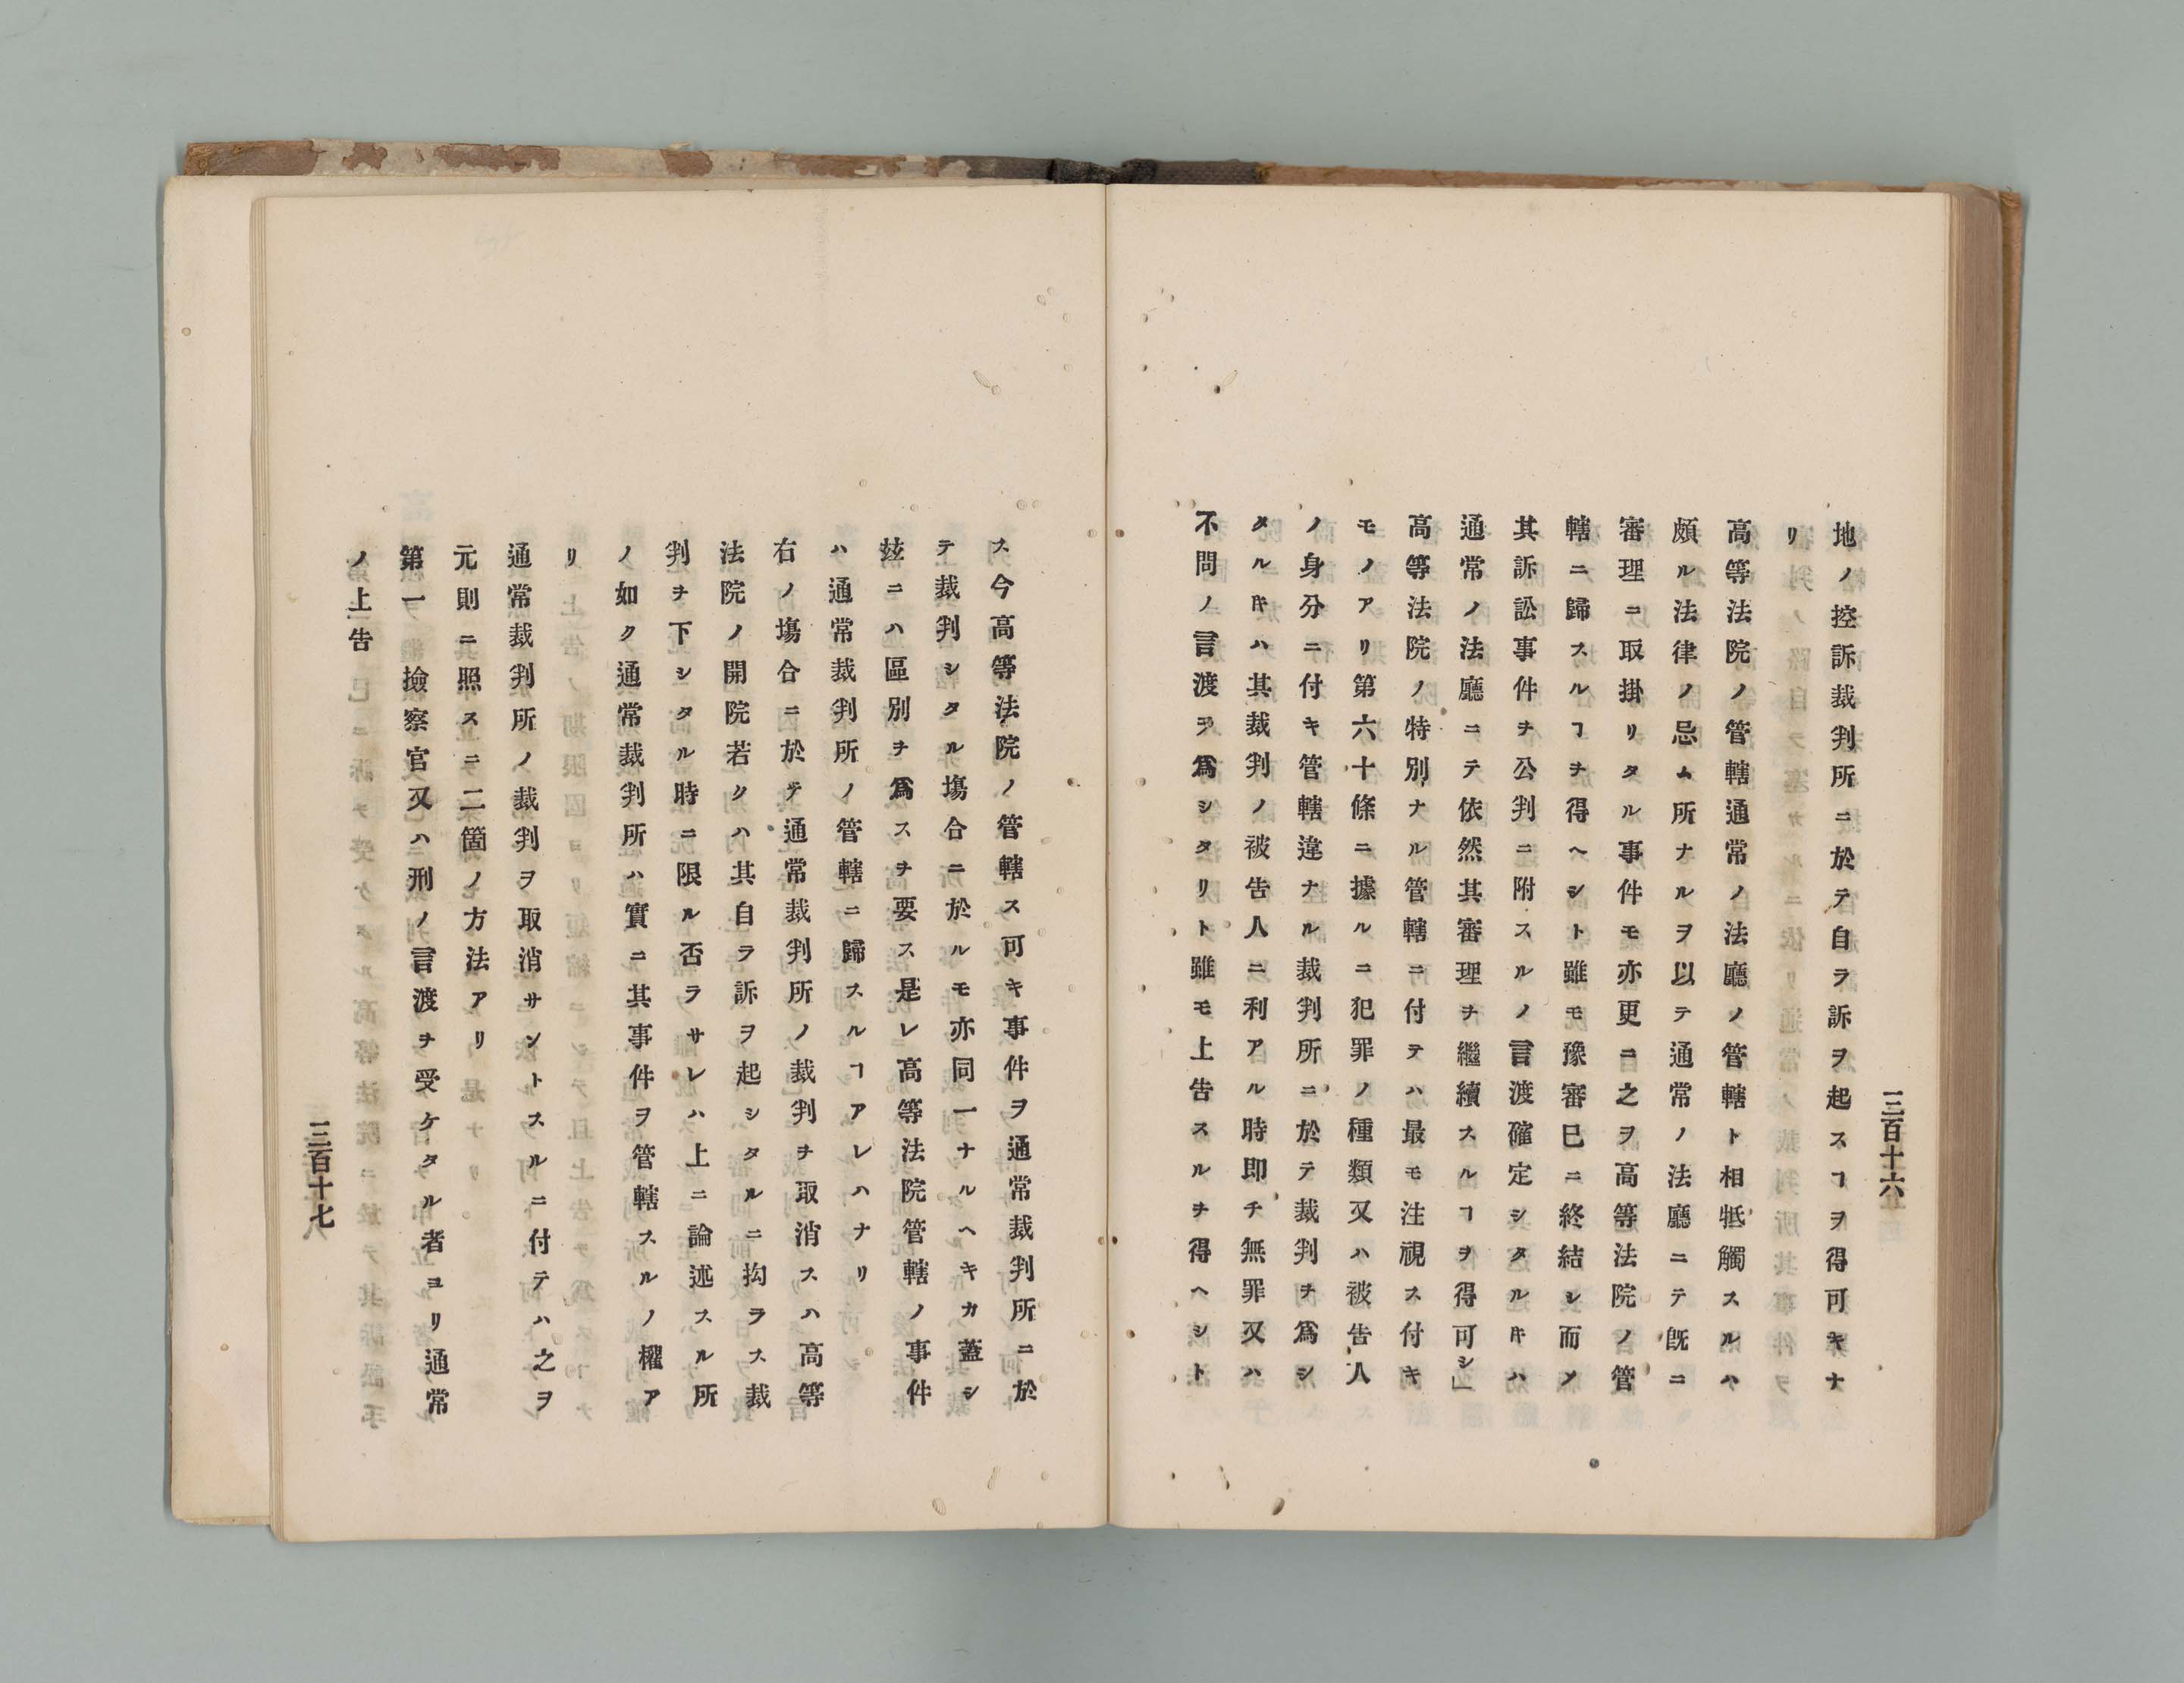 三百十六
地ノ控訴裁判所ニ於テ自ラ訴ヲ起スヿヲ得可キナ
リ
高等法院ノ管轄通常ノ法廳ノ管轄ト相牴觸スルハ
頗ル法律ノ忌ム所ナルヲ以テ通常ノ法廳ニテ旣ニ
審理ニ取掛リタル事件モ亦更ニ之ヲ高等法院ノ管
轄ニ歸スルヿヲ得ヘシト雖モ豫審已ニ終結シ而〆
其訴訟事件ヲ公判ニ附スルノ言渡確定シタルキハ
通常ノ法廳ニテ依然其審理ヲ繼續スルヿヲ得可シ」
高等法院ノ特別ナル管轄ニ付テハ最モ注視ス付キ
モノアリ第六十條ニ據ルニ犯罪ノ種類又ハ被告人
ノ身分ニ付キ管轄違ナル裁判所ニ於テ裁判ヲ爲シ
タルキハ其裁判ノ被告人ニ利アル時即チ無罪又ハ
不問ノ言渡ヲ爲シタリト雖モ上告スルヲ得ヘシト
ス今高等法院ノ管轄ス可キ事件ヲ通常裁判所ニ於
テ裁判シタル塲合ニ於ルモ亦同一ナルヘキカ蓋シ
玆ニハ區別ヲ爲スヲ要ス是レ高等法院管轄ノ事件
ハ通常裁判所ノ管轄ニ歸スルヿアレハナリ
右ノ塲合ニ於テ通常裁判所ノ裁判ヲ取消スハ高等
法院ノ開院若クハ其自ラ訴ヲ起シタルニ拘ラス裁
判ヲ下シタル時ニ限ル否ラサレハ上ニ論述スル所
ノ如ク通常裁判所ハ實ニ其事件ヲ管轄スルノ權ア
リ
通常裁判所ノ裁判ヲ取消サントスルニ付テハ之ヲ
元則ニ照スニ二箇ノ方法アリ
第一 撿察官又ハ刑ノ言渡ヲ受ケタル者ヨリ通常
ノ上告
三百十七